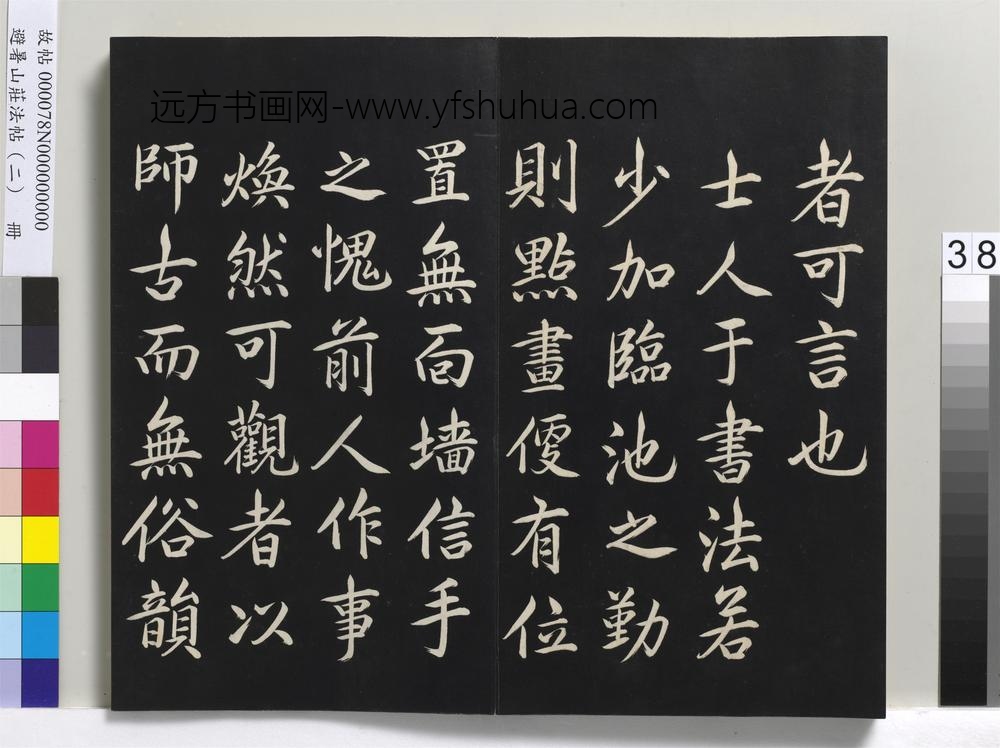 者可言也
士人于書法若
少加臨池之勤
則點畫便有位
置無面墙信手
之愧前人作事
煥然可觀者以
師古而無俗韻
远方书画网-www.yfshuhua.com
故帖 000078N000000000
避暑山莊法帖（二） 冊
38